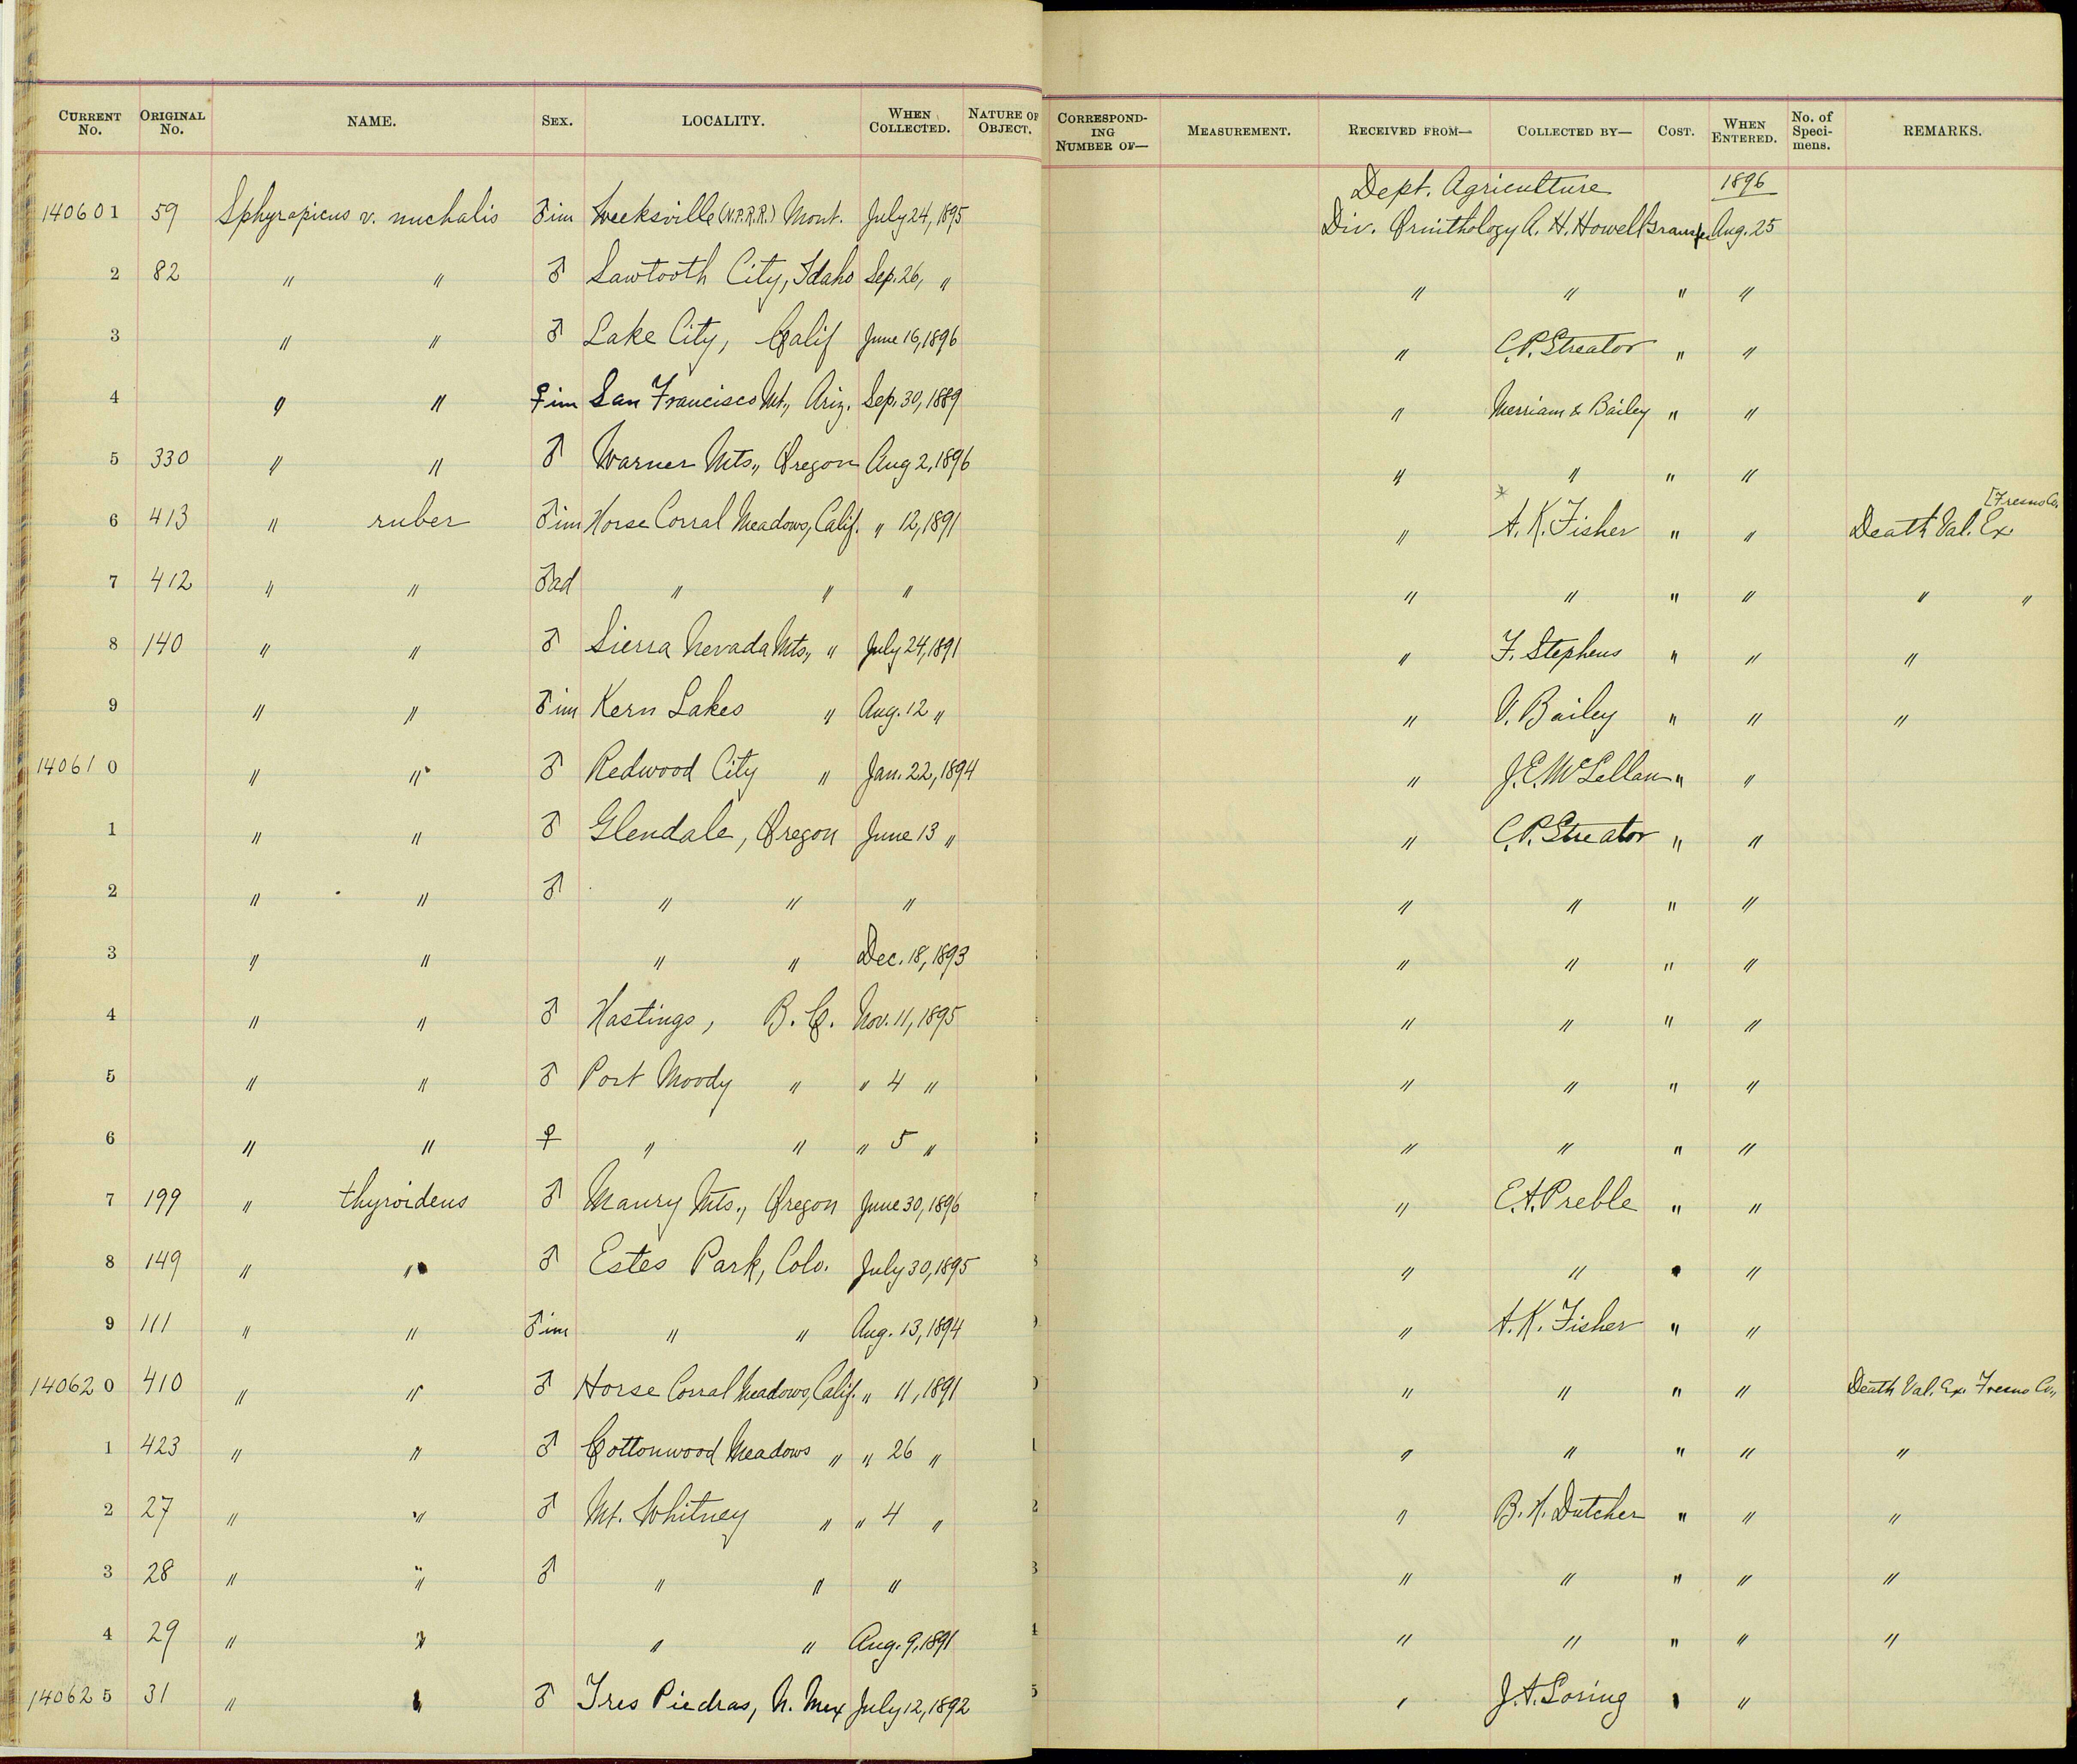 CURRENT No. ORIGINAL No. NAME. SEX. LOCALITY. WHEN COLLECTED. NATURE OF OBJECT. CORRESPONDING NUMBER OF— MEASUREMENT. RECEIVED FROM— COLLECTED BY— COST. WHEN ENTERED. No. of Specimens. REMARKS.
Dept. Agriculture 1896
140601 59 Sphyrapicus v. nuchalis ♂im Weeksville (N.P.R.R.) Mont. July 24, 1895 Div. Ornithology A. H. Howell Transfer Aug. 25
2 82 " " ♂ Sawtooth City, Idaho Sep. 26, " " " " "
3 " " ♂ Lake City, Calif June 16, 1896 " C.P. Streator " "
4 " " ♀im San Francisco Mt., Ariz. Sep. 30, 1889 " Merriam & Bailey " "
5 330 " " ♂ Warner Mts., Oregon Aug 2, 1896 " " " "
6 413 " ruber ♂im Horse Corral Meadows, Calif. " 12, 1891 " A. K. Fisher " " Death Val. Ex [Fresno Co.
7 412 " " ♂ad " " " " " " " " "
8 140 " " ♂ Sierra Nevada Mts., " July 24, 1891 " F. Stephens " " "
9 " " ♂im Kern Lakes " Aug. 12 " " V. Bailey " " "
140610 " " ♂ Redwood City " Jan. 22, 1894 " J. E. McLellan " "
1 " " ♂ Glendale, Oregon June 13 " " C.P. Streator " "
2 " " ♂ " " " " " " "
3 " " " " Dec. 18, 1893 " " " "
4 " " ♂ Hastings, B. C. Nov. 11, 1895 " " " "
5 " " ♂ Port Moody " " 4 " " " " "
6 " " ♀ " " " 5 " " " " "
7 199 " thyroideus ♂ Maury Mts., Oregon June 30, 1896 " E. A. Preble " "
8 149 " " ♂ Estes Park, Colo. July 30, 1895 " " " "
9 111 " " ♂im " " Aug. 13, 1894 " A. K. Fisher " "
140620 410 " " ♂ Horse Corral Meadows, Calif. " 11, 1891 " " " " Death Val. Ex. Fresno Co.,
1 423 " " ♂ Cottonwood Meadows " " 26 " " " " " "
2 27 " " ♂ Mt. Whitney " " 4 " " B. H. Dutcher " " "
3 28 " " ♂ " " " " " " " "
4 29 " " " " Aug. 9, 1891 " " " " "
140625 31 " " ♂ Tres Piedras, N. Mex July 12, 1892 " J. A. Loring " "